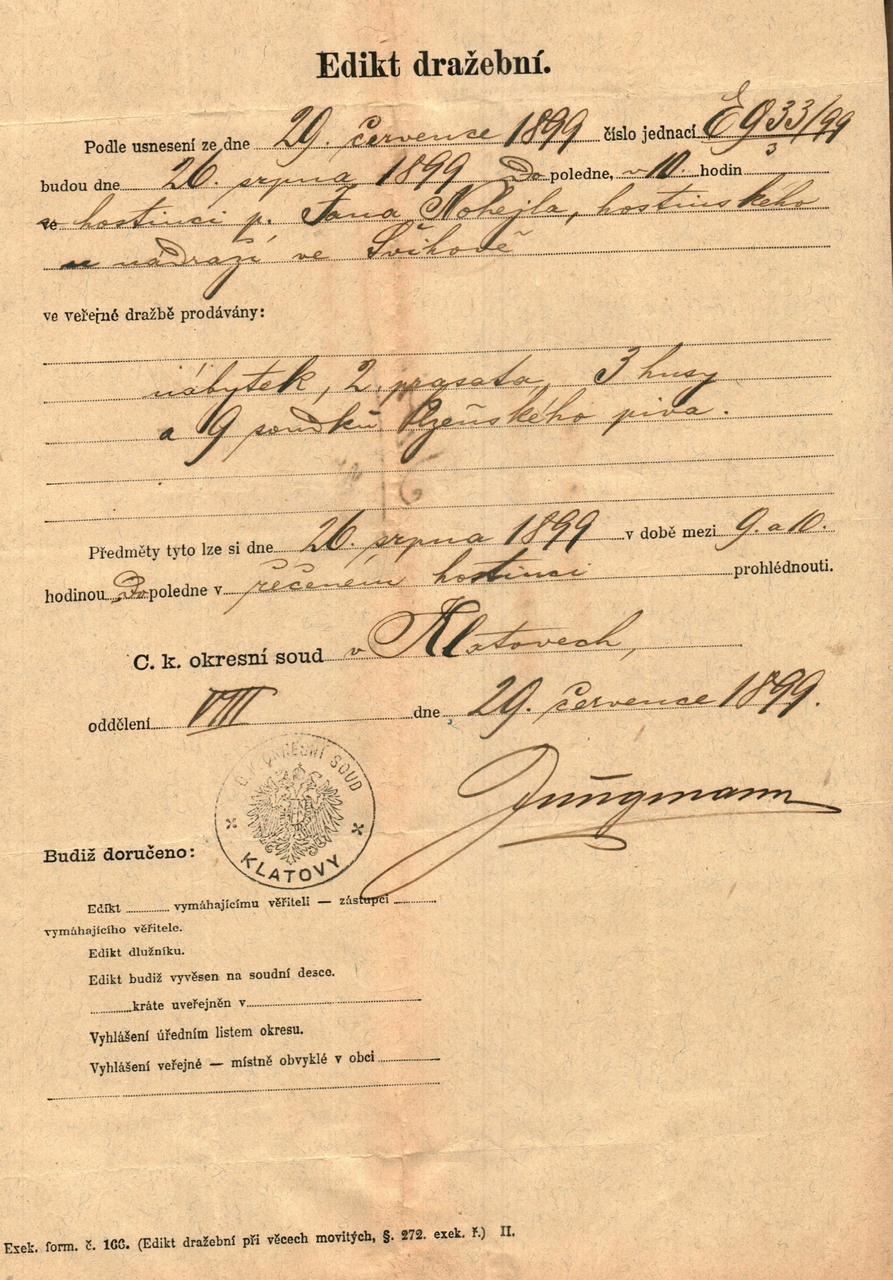 Edikt dražební.
Podle usnesení ze dne 29. července 1899 číslo jednací E 933/99
3
budou dne 26. srpna 1899 Do poledne, v 10. hodin
ve hostinci p. Jana Nohejla, hostinského
u nádraží ve Švihově
ve veřejné dražbě prodávány:
nábytek, 2 prasata, 3 husy
a 9 soudků Plzeňského piva.
Předměty tyto lze si dne 26. srpna 1899 v době mezi 9. a 10.
hodinou Do poledne v řečeném hostinci prohlédnouti.
C. k. okresní soud v Klatovech,
oddělení VIII dne 29. července 1899.
Jungmann
C. K. OKRESNÍ SOUD
KLATOVY
Budiž doručeno:
Edikt vymáhajícímu věřiteli — zástupci
vymáhajícího věřitele.
Edikt dlužníku.
Edikt budiž vyvěsen na soudní desce.
kráte uveřejněn v
Vyhlášení úředním listem okresu.
Vyhlášení veřejné — místně obvyklé v obci
Exek. form. č. 166. (Edikt dražební při věcech movitých, §. 272. exek. ř.) II.